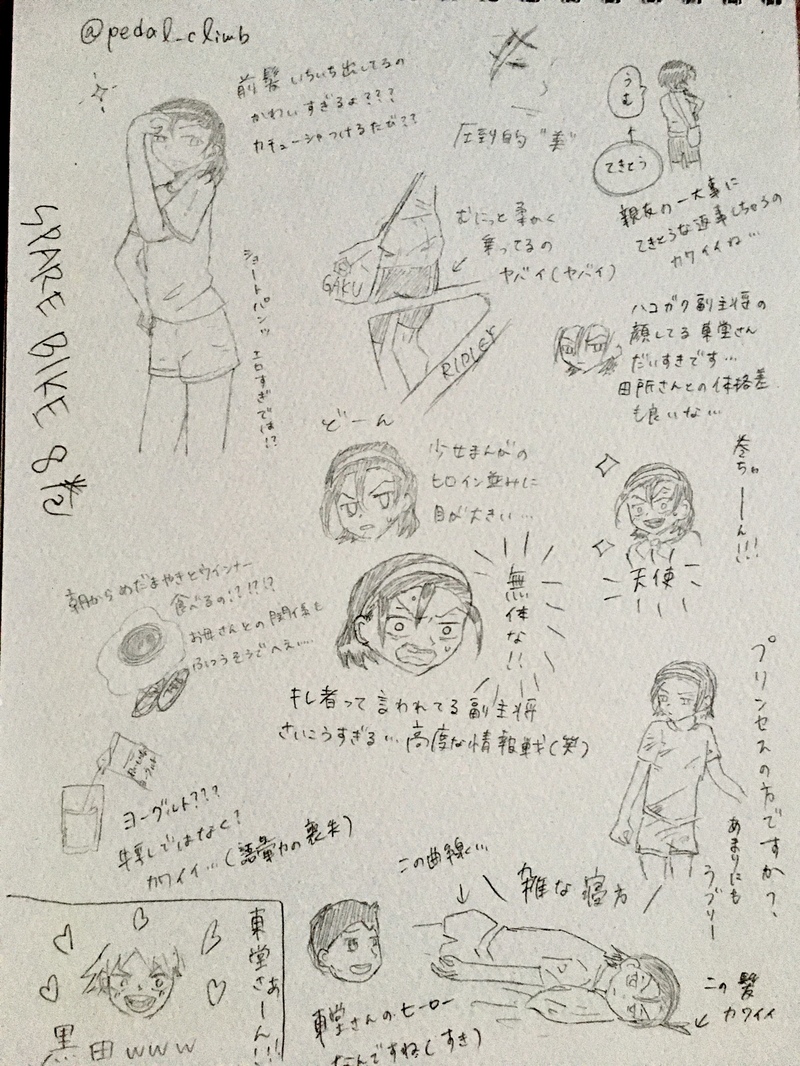 @pedal_climb
前髪いちいち出してるの
かわいすぎるよ???
カチューシャつけるたび??
圧倒的"美"
うむ
てきとう
親友の一大事に
てきとうな返事しちゃうの
カワイイね…
SPARE BIKE 8巻
ショートパンツ エロすぎでは!?
むにっと柔かく
乗ってるの
ヤバイ(ヤバイ)
GAKU
RIDLEY
ハコガク副主将の
顔してる東堂さん
だいすきです…
田所さんとの体格差
も良いな…
どーん
少女まんがの
ヒロイン並みに
目が大きい…
巻ちゃーーん!!!
天使
無体な!!
朝からめだまやきとウインナー
食べるの!?!?!?
お母さんとの関係も
ふつうそうでへえ….
キレ者って言われてる副主将
さいこうすぎる…高度な情報戦(笑)
プリンセスの方ですか?、
あまりにも
ラブリー
ヨーグルト???
牛乳ではなく?
カワイイ…(語彙力の喪失)
この曲線…
雑な寝方
この髪
カワイイ
東堂さぁーん!!!
黒田www
東堂さんのヒーロー
なんですね(すき)